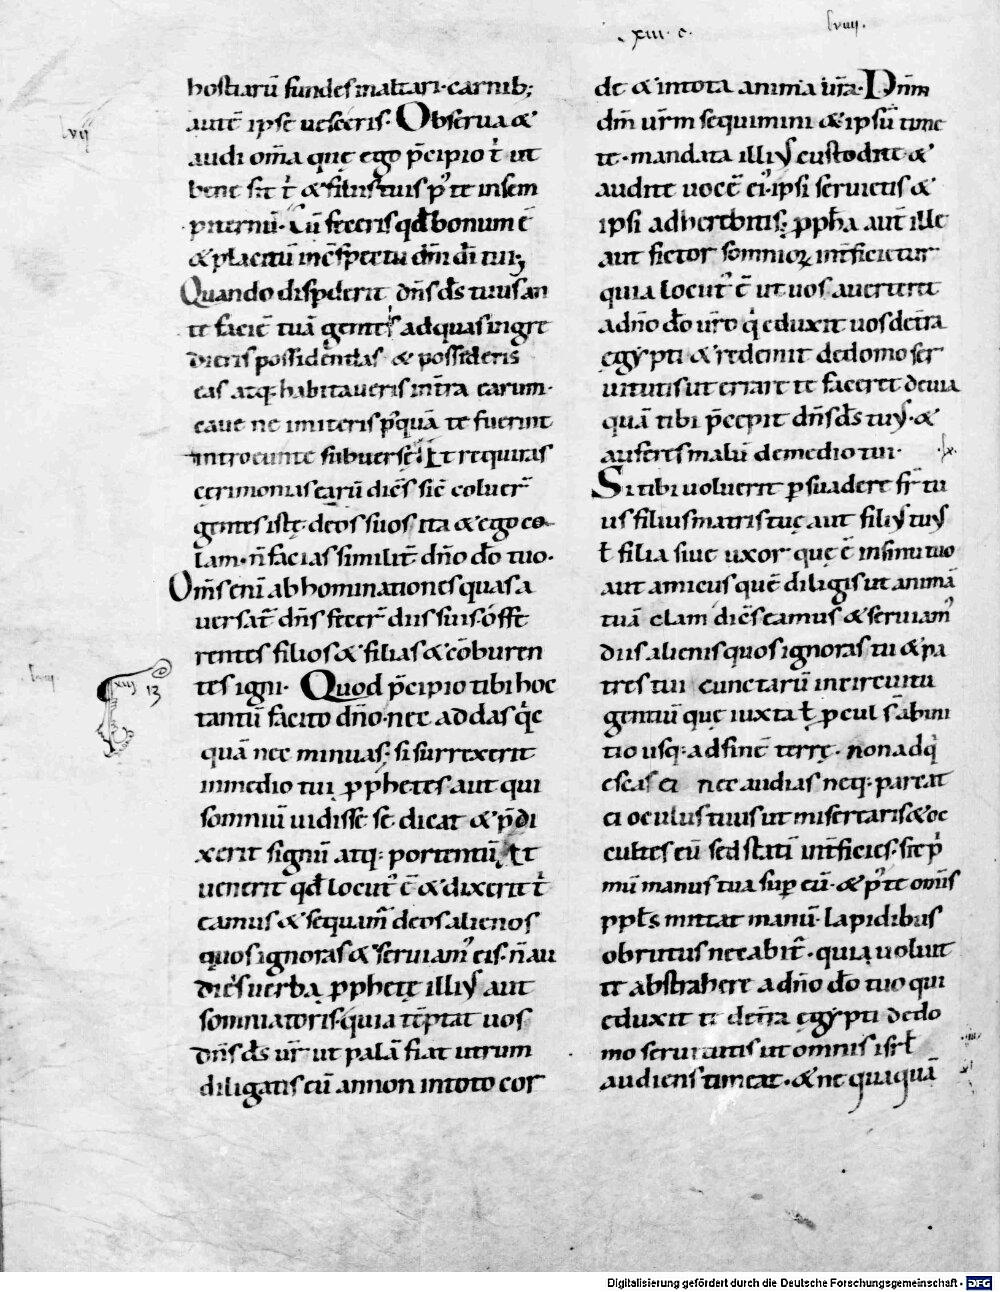 .xiii. c.
lviiii.
hostiarū fundes in altari. carnib;
autē ipse uesceris. Obserua &
audi om̄a quę ego p̄cipio t̄ ut
bene sit t̄ & filiis tuis p᷒ te in sem
piternū. Cū feceris qđ bonum ē
& placitū in c̄spectu dn̄i dī tui;
Quando disꝑderit dn̄s ds̄ tuus an
te faciē tuā gentes ad quas ingre
dieris possidendas & possideris
eas atq; habitaueris in t̄ra earum.
caue ne imiteris p᷒quā te fuerint
introeunte subuersę. Et requiras
cerimonias earū dicēs sic̄ coluer̄
gentes istę. deos suos ita & ego co
lam. n̄ facias similit̄ dn̄o dō tuo.
Om̄s eni abhominationes quas a
uersat̄ dn̄s fecer̄ diis suis. offe
rentes filios & filias & cōburen
tes igni. Quod p̄cipio tibi hoc
tantū facito dn̄o. nec addas q̄c
quā nec minuas. si surrexerit
in medio tui ꝓphetes aut qui
somniū uidisse se dicat & p̄di
xerit signū atq; portentū. Et
uenerit qđ locut᷒ ē & dixerit t̄
eamus & sequam̄ deos alienos
quos ignoras & seruiam᷒ eis. n̄ au
dies uerba ꝓphetę illi᷒ aut
somniatoris. quia tēptat uos
dn̄s ds̄ ur̄ ut palā fiat utrum
diligatis eū an non in toto cor
lvii
xiii
13
de & in tota anima ur̄a. Dn̄m
dm̄ ur̄m sequimini & ipsū time
te. mandata illi᷒ custodite &
audite uocē ei᷒. ipsi seruietis &
ipsi adherebitis; ꝓph̄a aut̄ ille
aut fictor somnioꝝ int̄ficietur
quia locut᷒ ē ut uos auerteret
a dn̄o dō ur̄o q̇ eduxit uos de t̄ra
ęgypti & redemit de domo ser
uitutis ut errare te faceret de uia
quā tibi p̄cepit dn̄s ds̄ tu᷒. &
auferes malū de medio tui.
lx.
Si tibi uoluerit ꝑsuadere fr̄ tu
us filius matris tuę aut fili᷒ tu᷒
ł filia siue uxor quę ē in sinu tuo
aut amicus quē diligis ut animā
tuā clam dicēs eamus & seruiam᷒
diis alienis quos ignoras tu & pa
tres tui cunctarū in circuitu
gentiū quę iuxta ł ꝓcul s̄ ab ini
tio usq; ad finē terrę. non adq̇
escas ei nec audias neq; parcat
ei oculus tuus ut miserearis & oc
cultes eū sed statī int̄ficies. sit ṗ
mū manus tua suꝑ eū. & p᷒ te om̄is
ppl̄s mittat manū. lapidibus
obrutus necabit̄. quia uoluit
te abstrahere a dn̄o dō tuo qui
eduxit te de t̄ra ęgypti de do
mo seruitutis ut omnis isrł
audiens timeat. & ne quaquā
Digitalisierung gefördert durch die Deutsche Forschungsgemeinschaft - DFG